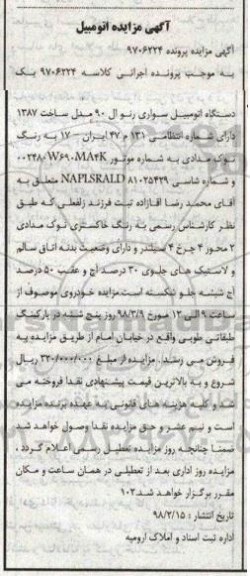 آگهی مزایده اتومبیل
آگهی مزایده پرونده ۹۷۰۶۲۲۴
به موجب پرونده اجرائی کلاسه ۹۷۰۶۲۲۴ یک
دستگاه اتومبیل سواری رنو ال ۹۰ مدل ساخت ۱۳۸۷
دارای شماره انتظامی ۱۳۱ م ۴۷ ایران – ۱۷ به رنگ
نوک مدادی به شماره موتور
و شماره شاسی NAPLSRALD ۸۱۰۲۵۴۲۹ متعلق به
آقای محمد رضا آقازاده ثبت فرزند زلفعلی که طبق
نظر کارشناس رسمی به رنگ خاکستری نوک مدادی
۲ محور ۴ چرخ ۴ سیلندر و دارای وضعیت بدنه اتاق سالم
و لاستیک های جلوی ۳۰ درصد آج و عقب ۵۰ درصد
آج شیشه جلو شکسته است مزایده خودروی موصوف از
ساعت ۹ الی ۱۲ مورخ ۹۸/۳/۹ روز پنج شنبه در پارکینگ
طبقاتی طوبی واقع در خیابان امام از طریق مزایده به
فروش می رسد . مزایده از مبلغ ۳۳۰/۰۰۰/۰۰۰ ریال
شروع و به بالاترین قیمت پیشنهادی نقدا فروخته می
شد و کلیه هزینه های قانونی به عهده برنده مزایده
است و نیم عشر و حق مزایده نقدا وصول خواهد شد
ضمنا چنانچه روز مزایده تعطیل رسمی اعلام گردد ،
مزایده روز اداری بعد از تعطیلی در همان ساعت و مکان
مقرر برگزار خواهد شد ۱۰۲
تاریخ انتشار : ۹۸/۲/۱۵
اداره ثبت اسناد و املاک ارومیه